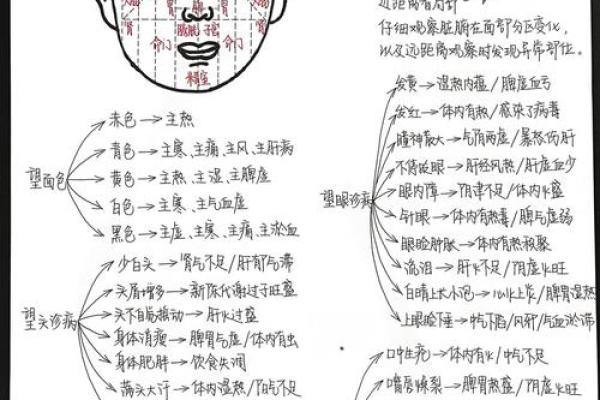 胃
胃
肾
肾
膀胱
子宫
命门
命门
精室
仔细观察脏腑在面部分区变化,
以及远距离观察时发现异常部位。
望面色
赤色→主热
青色→主寒、主痛、主风、主肝病
黄色→主热、主湿、主脾虚
白色→主寒、主气血虚
黑色→主虚、主寒、主痛、主淤血
望头诊病
少白头→肾气不足/肝郁气滞
头屑增多→新陈代谢过于旺盛
头不自觉振动→肝火过盛
身体消瘦→脾胃气虚/体内有虫
身体肥胖→饮食失调
满头大汗→体内湿热/阳气不足
望眼诊病
发黄→湿热内蕴/脾虚血亏
发红→体内有热/感染了病毒
瞳神散大→气阴两虚/暴怒伤肝
不停眨眼→肝经风热/肝虚血少
眼内障→阴津不足/体内火盛
针眼→体内有热毒/脾气虚弱
眼睑肿胀→体内有热积聚
流泪→肝火不足/阴虚火旺
白睛上大小泡→心火上炎/脾胃湿热
上眼睑下垂→中气下陷/风邪/气血淤滞
口中生疮→体内有火/中气不足
嘴唇燥裂→脾胃热盛/阴虚火旺